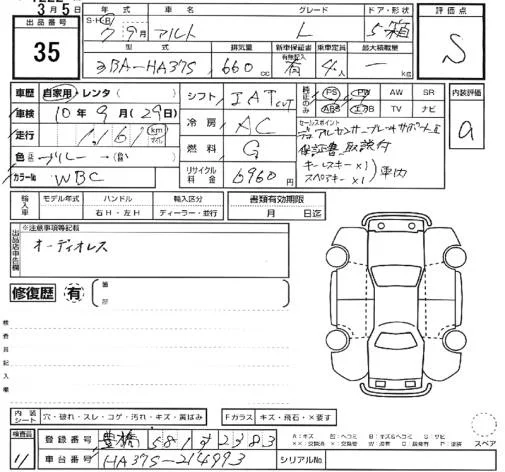 3月5日
出品番号
35
年式
車名
グレード
ドア・形状
S・H・R 7年9月
アルト
L
5 箱
型式
排気量
新車保証書
有無記入
乗車定員
最大積載量
3BA-HA37S
660 cc
有
4人
kg
評価点
S
内装評価
a
車歴
自家用・レンタ( )
車検
10年9月(29日)
走行
km
マイル
色
カラー№
WBC
シフト
IAT CVT
冷房
AC
燃料
G
リサイクル料金
6960円
純正のみ
PS PW AW SR
ABS エアB TV ナビ
セールスポイント
デュアルセンサーブレーキサポートⅡ
保証書、取説付
キーレスキー×1
スペアキー×1
車内
輸入車
モデル年式
ハンドル
右H・左H
輸入区分
ディーラー・並行
書類有効期限
月 日迄
出品店申告欄
※注意事項等記載
オーディオレス
修復歴
有
箇所
検査員記入欄
内装シート
穴・破れ・スレ・コゲ・汚れ・キズ・黄ばみ
Fガラス
キズ・飛石・×要す
スペア
検査員
11
登録番号
豊橋 581 す 2383
車台番号
HA37S-214993
シリアルNo.
A:キズ